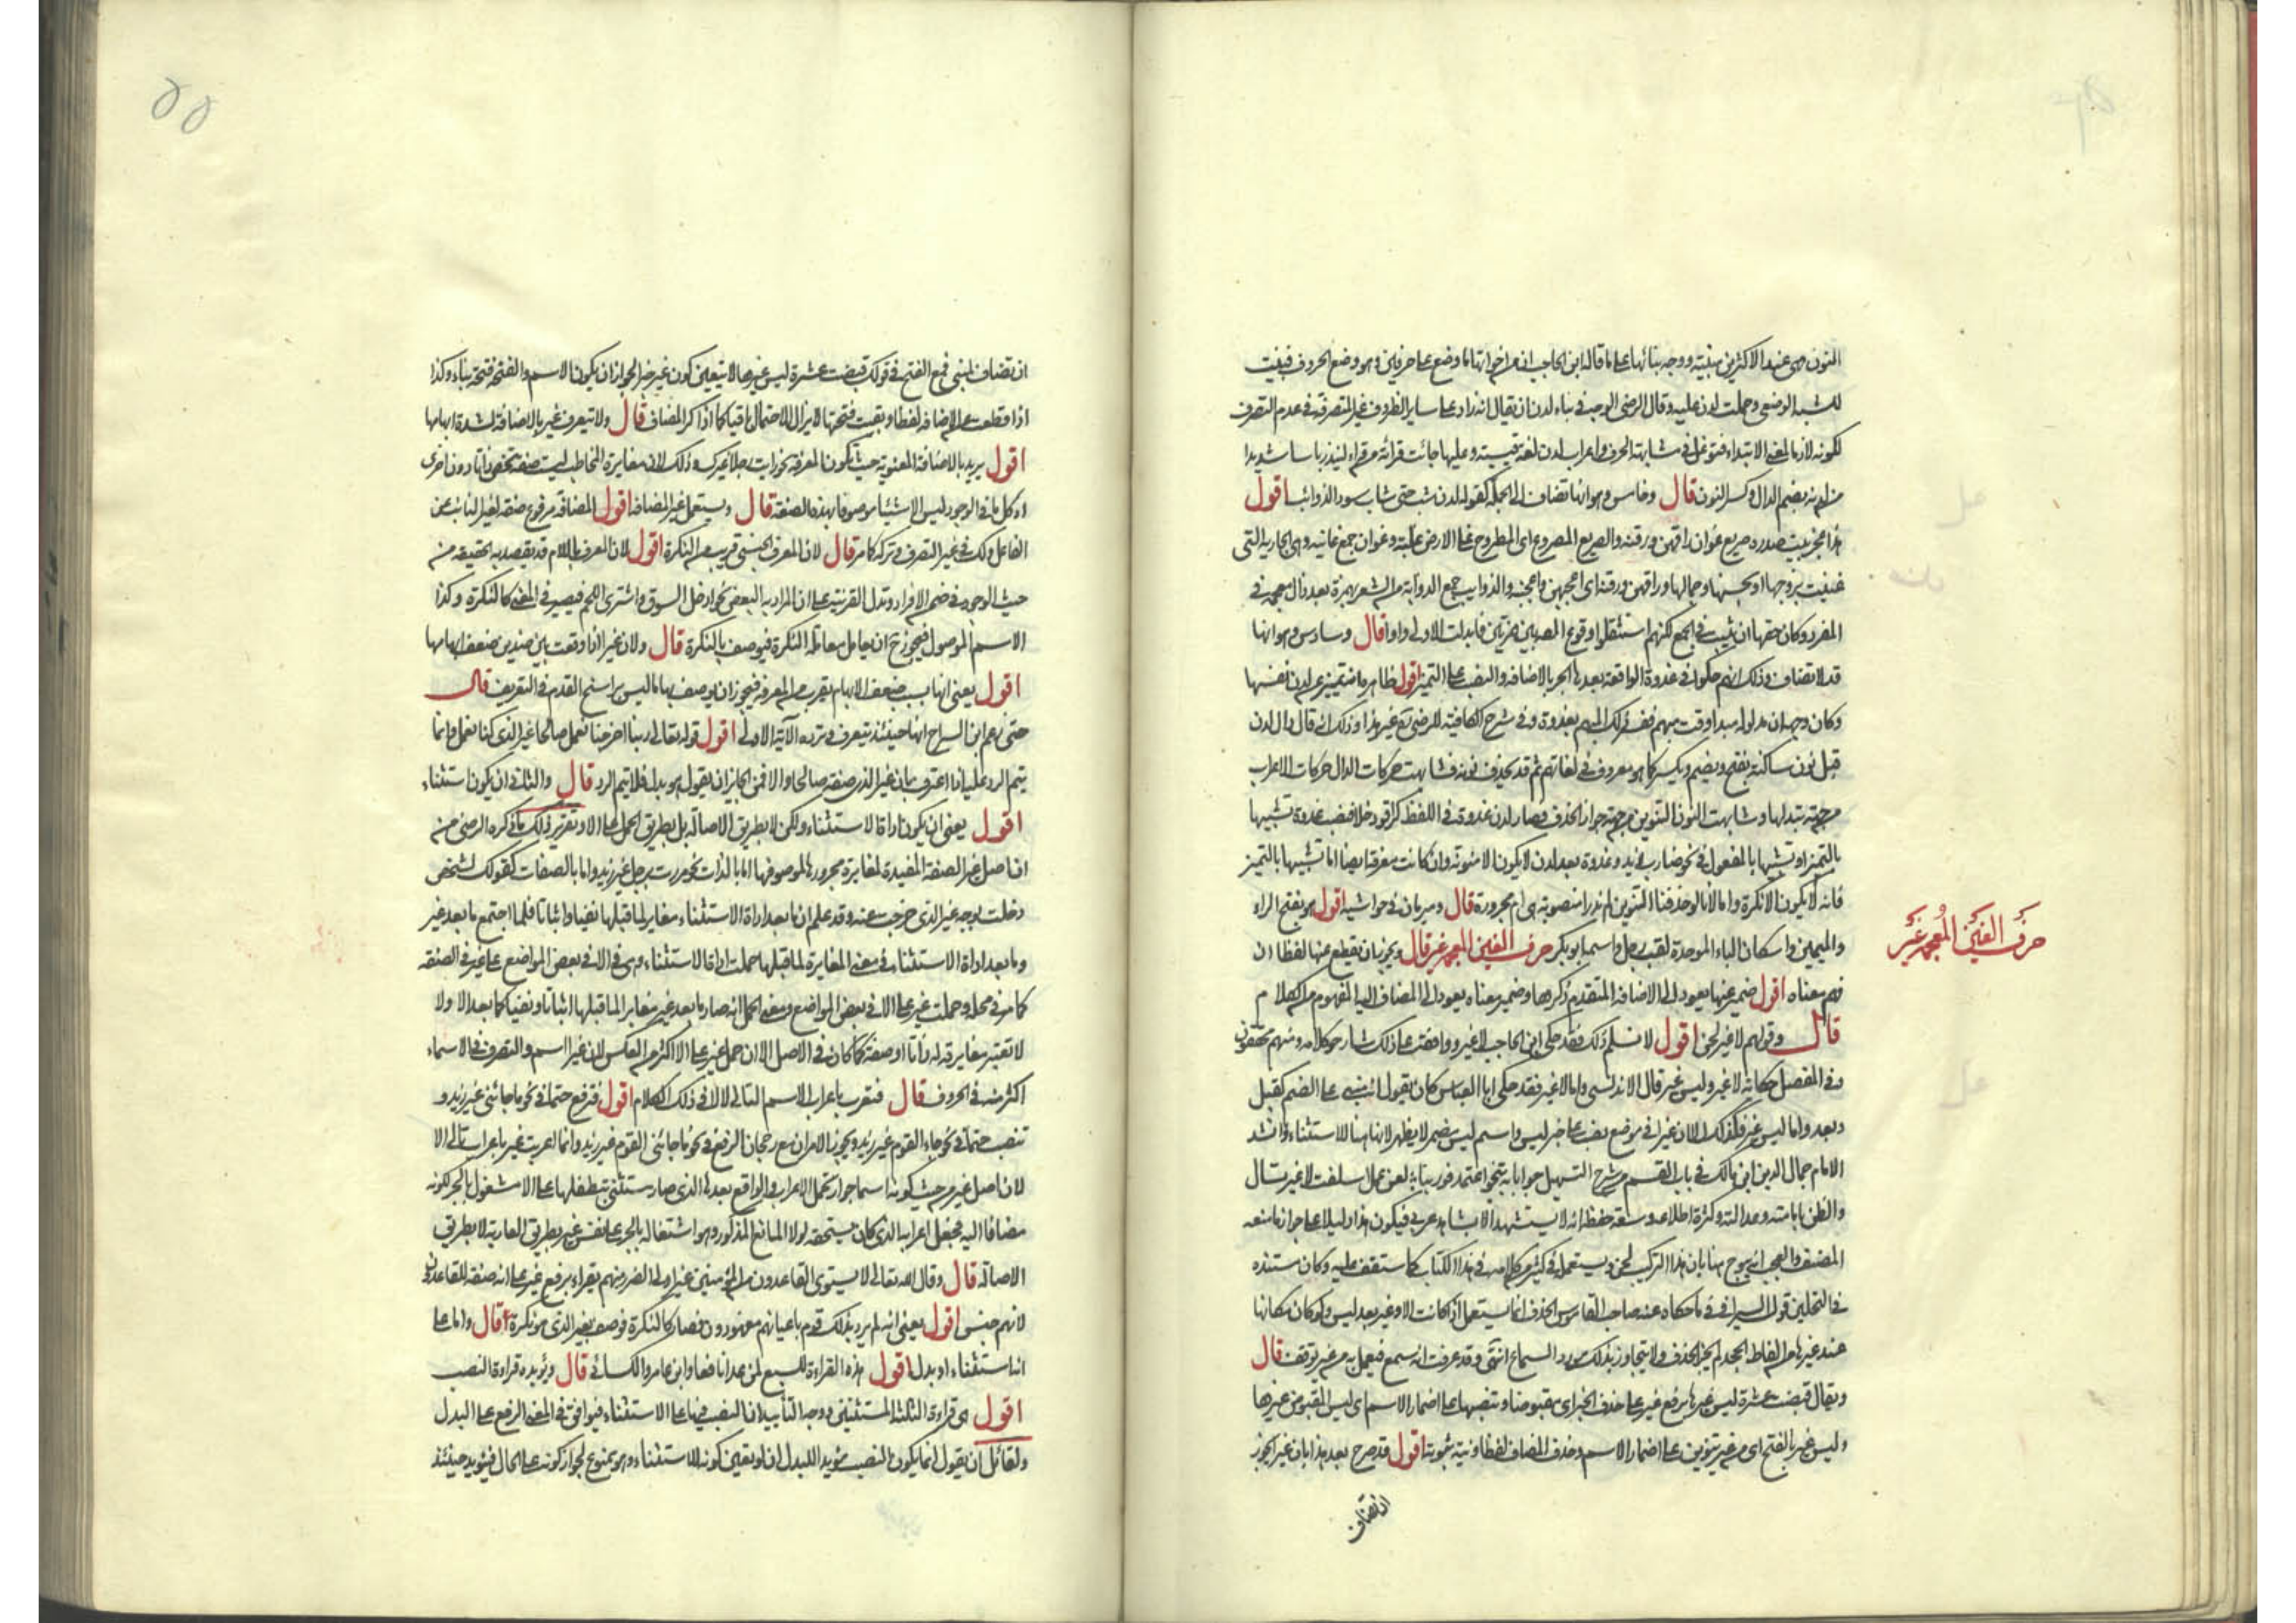 النون وهى عند الاكثرين مبنية ووجه بنائها على ما قاله ابن الحاجب ان من اخواتها ما وضع على حرفين وهو وضع الحروف فبنيت
للشبه الوضعى وحملت لدن عليه وقال الرضى الوجه فى بناء لدن ان يقال انه زاد على ساير الظروف غير المتصرفة فى عدم التصرف
لكونه لازما لمعنى الابتداء فتوغل فى مشابهة الحرف واعراب لدن لغة قيسية وعليها جائت قرائة من قراء لينذر باسا شديدا
من لدنه بضم الدال وكسر النون قال وخامس وهو انها تضاف الى الجملة كقوله لدن شب حتى شاب سود الذوائب اقول
هذا عجز بيت صدره صريع غوان راقهن ورقنه والصريع المصروع اى المطروح على الارض غلبة وغوان جمع غانية وهى الجارية التى
غنيت بزوجها او بحسنها وجمالها وراقهن ورقنه اى اعجبهن واعجبنه والذوايب جمع الذوابة من الشعر بهمزة بعد ذال معجمة فى
المفرد وكان حقها ان يثبت فى الجمع لكنهم استثقلوا وقوع المد بين همزتين فابدلت الاولى واوا قال وسادس وهو انها
قد لا تضاف وذلك انهم حكوا فى غدوة الواقعة بعدها الجر بالاضافة والنصب على التميز اقول ظاهره انه تمييز عن لدن نفسها
وكان وجهه ان مدلوله مبدا وقت مبهم ففسر ذلك المبهم بغدوة وفى شرح الكافية للرضى رح غير هذا وذلك انه قال دال لدن
قبل نون ساكنة بفتح وبضم وبكسر كما هو معروف فى لغاتهم ثم قد يحذف نونه فشابهت حركات الدال حركات الاعراب
من جهة تبدلها وشابهت النون التنوين من جهة جواز الحذف فصار لدن غدوة فى اللفظ كراقود خلا فنصب غدوة تشبيها
بالتميز او تشبيها بالمفعول فى نحو ضارب زيدا وغدوة بعد لدن لا يكون الا منونة وان كانت معرفة ايضا اما تشبيها بالتميز
فانه لا يكون الا نكرة واما لانا لو حذفنا التنوين لم ندر ا منصوبة هى ام مجرورة قال ومبرمان فى حواشيه اقول هو بفتح الراء
والميمين واسكان الباء الموحدة لقب رجل واسمه ابو بكر حرف الغين المعجمة غير قال ويجوز ان يقطع عنها لفظا ان
حرف الغين المعجمة غير
فهم معناه اقول ضمير عنها يعود الى الاضافة المتقدم ذكرها وضمير معناه يعود الى المضاف اليه المفهوم من الكلام
قال وقولهم لا غير لحن اقول لا نسلم ذلك فقد حكى ابن الحاجب لا غير ووافقه على ذلك شارحوا كلامه ومنهم محققون
وفى المفصل حكاية لا غير وليس غير قال الاندلسى واما لا غير فقد حكى ابا العباس كان يقول انه مبنى على الضم كقبل
وبعد واما ليس غير فكذلك الا ان غيرا فى موضع نصب على خبر ليس واسم ليس مضمر لا يظهر لانها هنا للاستثناء وانشد
الامام جمال الدين ابن مالك فى باب القسم من شرح التسهيل جوابا به تنجو اعتمد فوربنا لعن عمل اسلفت لا غير تسال
والظن بامامته وعدالته وكثرة اطلاعه وسعة حفظه انه لا يستشهد الا بشاهد عربى فيكون هذا دليلا على جواز ما منعه
المصنف والعجب انه يبوح هنا بان هذا التركيب لحن ويستعمله فى كثير من كلامه فى هذا الكتاب كما ستقف عليه وكان مستنده
فى التلحين قول السيرافى فيما حكاه عنه صاحب القاموس الحذف انما يستعمل اذا كانت الا وغير بعد ليس ولو كان مكانها
عند غيرها من الفاظ الجحد لم يجز الحذف ولا يتجاوز بذلك مورد السماع انتهى وقد عرفت انه سمع فيعمل به من غير توقف قال
ويقال قبضت عشرة ليس غيرها برفع غير على حذف الخبر اى مقبوضا وبنصبها على اضمار الاسم اى ليس المقبوض غيرها
وليس غير بالفتح اى من غير تنوين على اضمار الاسم وحذف المضاف لفظا ونية ثبوته اقول قد صرح بعد هذا بان غير يجوز
ان تضاف
٥٥
ان تضاف لمبنى فمع الفتح فى قولك قبضت عشرة ليس غيرها لا يتعين كون غير خبرا لجواز ان يكون الاسم والفتحة فتحة بناء وكذا
اذا قطعت عن الاضافة لفظا وبقيت فتحتها لا يزال الاحتمال باقيا كما اذا ذكر المضاف قال ولا تتعرف غير بالاضافة لشدة ابهامها
اقول يريد بالاضافة المعنوية حيث تكون المعرفة نحو رايت رجلا غيرك وذلك لان مغايرة المخاطب ليست صفة تخص ذاتا دون اخرى
اذ كل ما فى الوجود ليس الا شيئا موصوفا بهذه الصفة قال ويستعمل غير المضافة اقول المضافة مرفوع صفة لغير النائب عن
الفاعل ولك فى غير التصرف وتركه كما مر قال لان المعرف الجنسى قريب من النكرة اقول لان المعرف باللام قد يقصد به الحقيقة من
حيث الوجود فى ضمن الافراد وتدل القرينة على ان المراد به البعض نحو ادخل السوق واشترى اللحم فيصير فى المعنى كالنكرة وكذا
الاسم الموصول فيجوز ح ان يعامل معاملة النكرة فيوصف بالنكرة قال ولان غيرا اذا وقعت بين ضدين ضعف ابهامها
اقول يعنى انها بسبب ضعف الابهام يقرب من المعرفة فيجوز ان يوصف بها ما ليس براسخ القدم فى التعريف قال
حتى زعم ابن السراج انها حينئذ يتعرف وترده الآية الاولى اقول قوله تعالى ربنا اخرجنا نعمل صالحا غير الذى كنا نعمل وانما
يتم الرد عليه اذا اعترف بان غير الذى صفة صالحا والا فمن الجايز ان يقول هو بدل فلا يتم الرد قال والثانى ان يكون استثناء
اقول يعنى ان يكون اداة الاستثناء ولكن لا بطريق الاصالة بل بطريق الحمل على الا وتقرير ذلك ما ذكره الرضى من
ان اصل غير الصفة المفيدة لمغايرة مجرورها لموصوفها اما بالذات نحو مررت برجل غير زيد واما بالصفات كقولك لشخص
دخلت بوجه غير الذى خرجت عنه وقد علم ان ما بعد اداة الاستثناء مغاير لما قبلها نفيا واثباتا فلما اجتمع ما بعد غير
وما بعد اداة الاستثناء فى معنى المغايرة لما قبلها حملت اداة الاستثناء وهى الا فى بعض المواضع على غير فى الصفة
كما مر فى محله وحملت غير على الا فى بعض المواضع ومعنى الحمل انه صار ما بعد غير مغايرا لما قبلها اثباتا ونفيا كما بعد الا ولا
لا تعتبر مغايرته له ذاتا او صفة كما كان فى الاصل الا ان حمل غير على الا اكثر من العكس لان غيرا اسم والتصرف فى الاسماء
اكثر منه فى الحروف قال فتعرب باعراب الاسم التالى لالا فى ذلك الكلام اقول فترفع حتما فى نحو ما جائنى غير زيد و
تنصب حتما فى نحو جاء القوم غير زيد ويجوز الامران مع رجحان الرفع فى نحو ما جائنى القوم غير زيد وانما اعربت غير باعراب تالى الا
لان اصل غير من حيث كونه اسما جواز تحمل الاعراب والواقع بعدها الذى صار مستثنى بتطفلها على الا مشغول بالجر لكونه
مضافا اليه فجعل اعرابه الذى كان يستحقه لولا المانع المذكور وهو اشتغاله بالجر على نفس غير بطريق العارية لا بطريق
الاصالة قال وقال الله تعالى لا يستوى القاعدون من المؤمنين غير اولى الضرر ومنهم يقراء برفع غير على انه صفة للقاعدون
لانهم جنس اقول يعنى انه لم يرد بذلك قوم باعيانهم معهودون فصار كالنكرة فوصف بغير الذى هو نكرة قال واما على
انه استثناء او بدل اقول هذه القراءة للسبع من عدا نافعا وابن عامر والكسائى قال ويؤيده قراءة النصب
اقول هى قراءة الثلثة المستثنين ووجه التأييد ان النصب فيها على الاستثناء فيوافق فى المعنى الرفع على البدل
ولقائل ان يقول انما يكون النصب مؤيدا للبدل ان لو تعين كونه للاستثناء وهو ممنوع لجواز كونه على الحال فيؤيد حينئذ